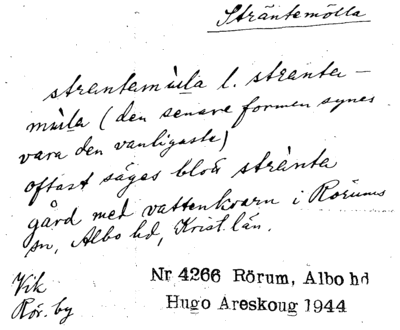 Sträntemölla
strantemula l. stranta-
mula (den senare formen synes
vara den vanligaste)
oftast säges bloa stränta
gård med vattenkvarn i Rörums
sn, Albo hd, Krist. län.
Vik
Rör. by
Nr 4266 Rörum, Albo hd
Hugo Areskoug 1944